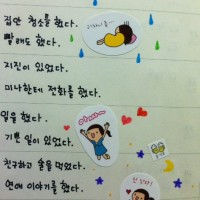 집안 청소를 했다.
빨래도 했다.
지진이 있었다.
미사한테 전화를 했다.
일을 했다.
기쁜 일이 있었다.
친구하고 술을 먹었다.
연애 이야기를 했다.